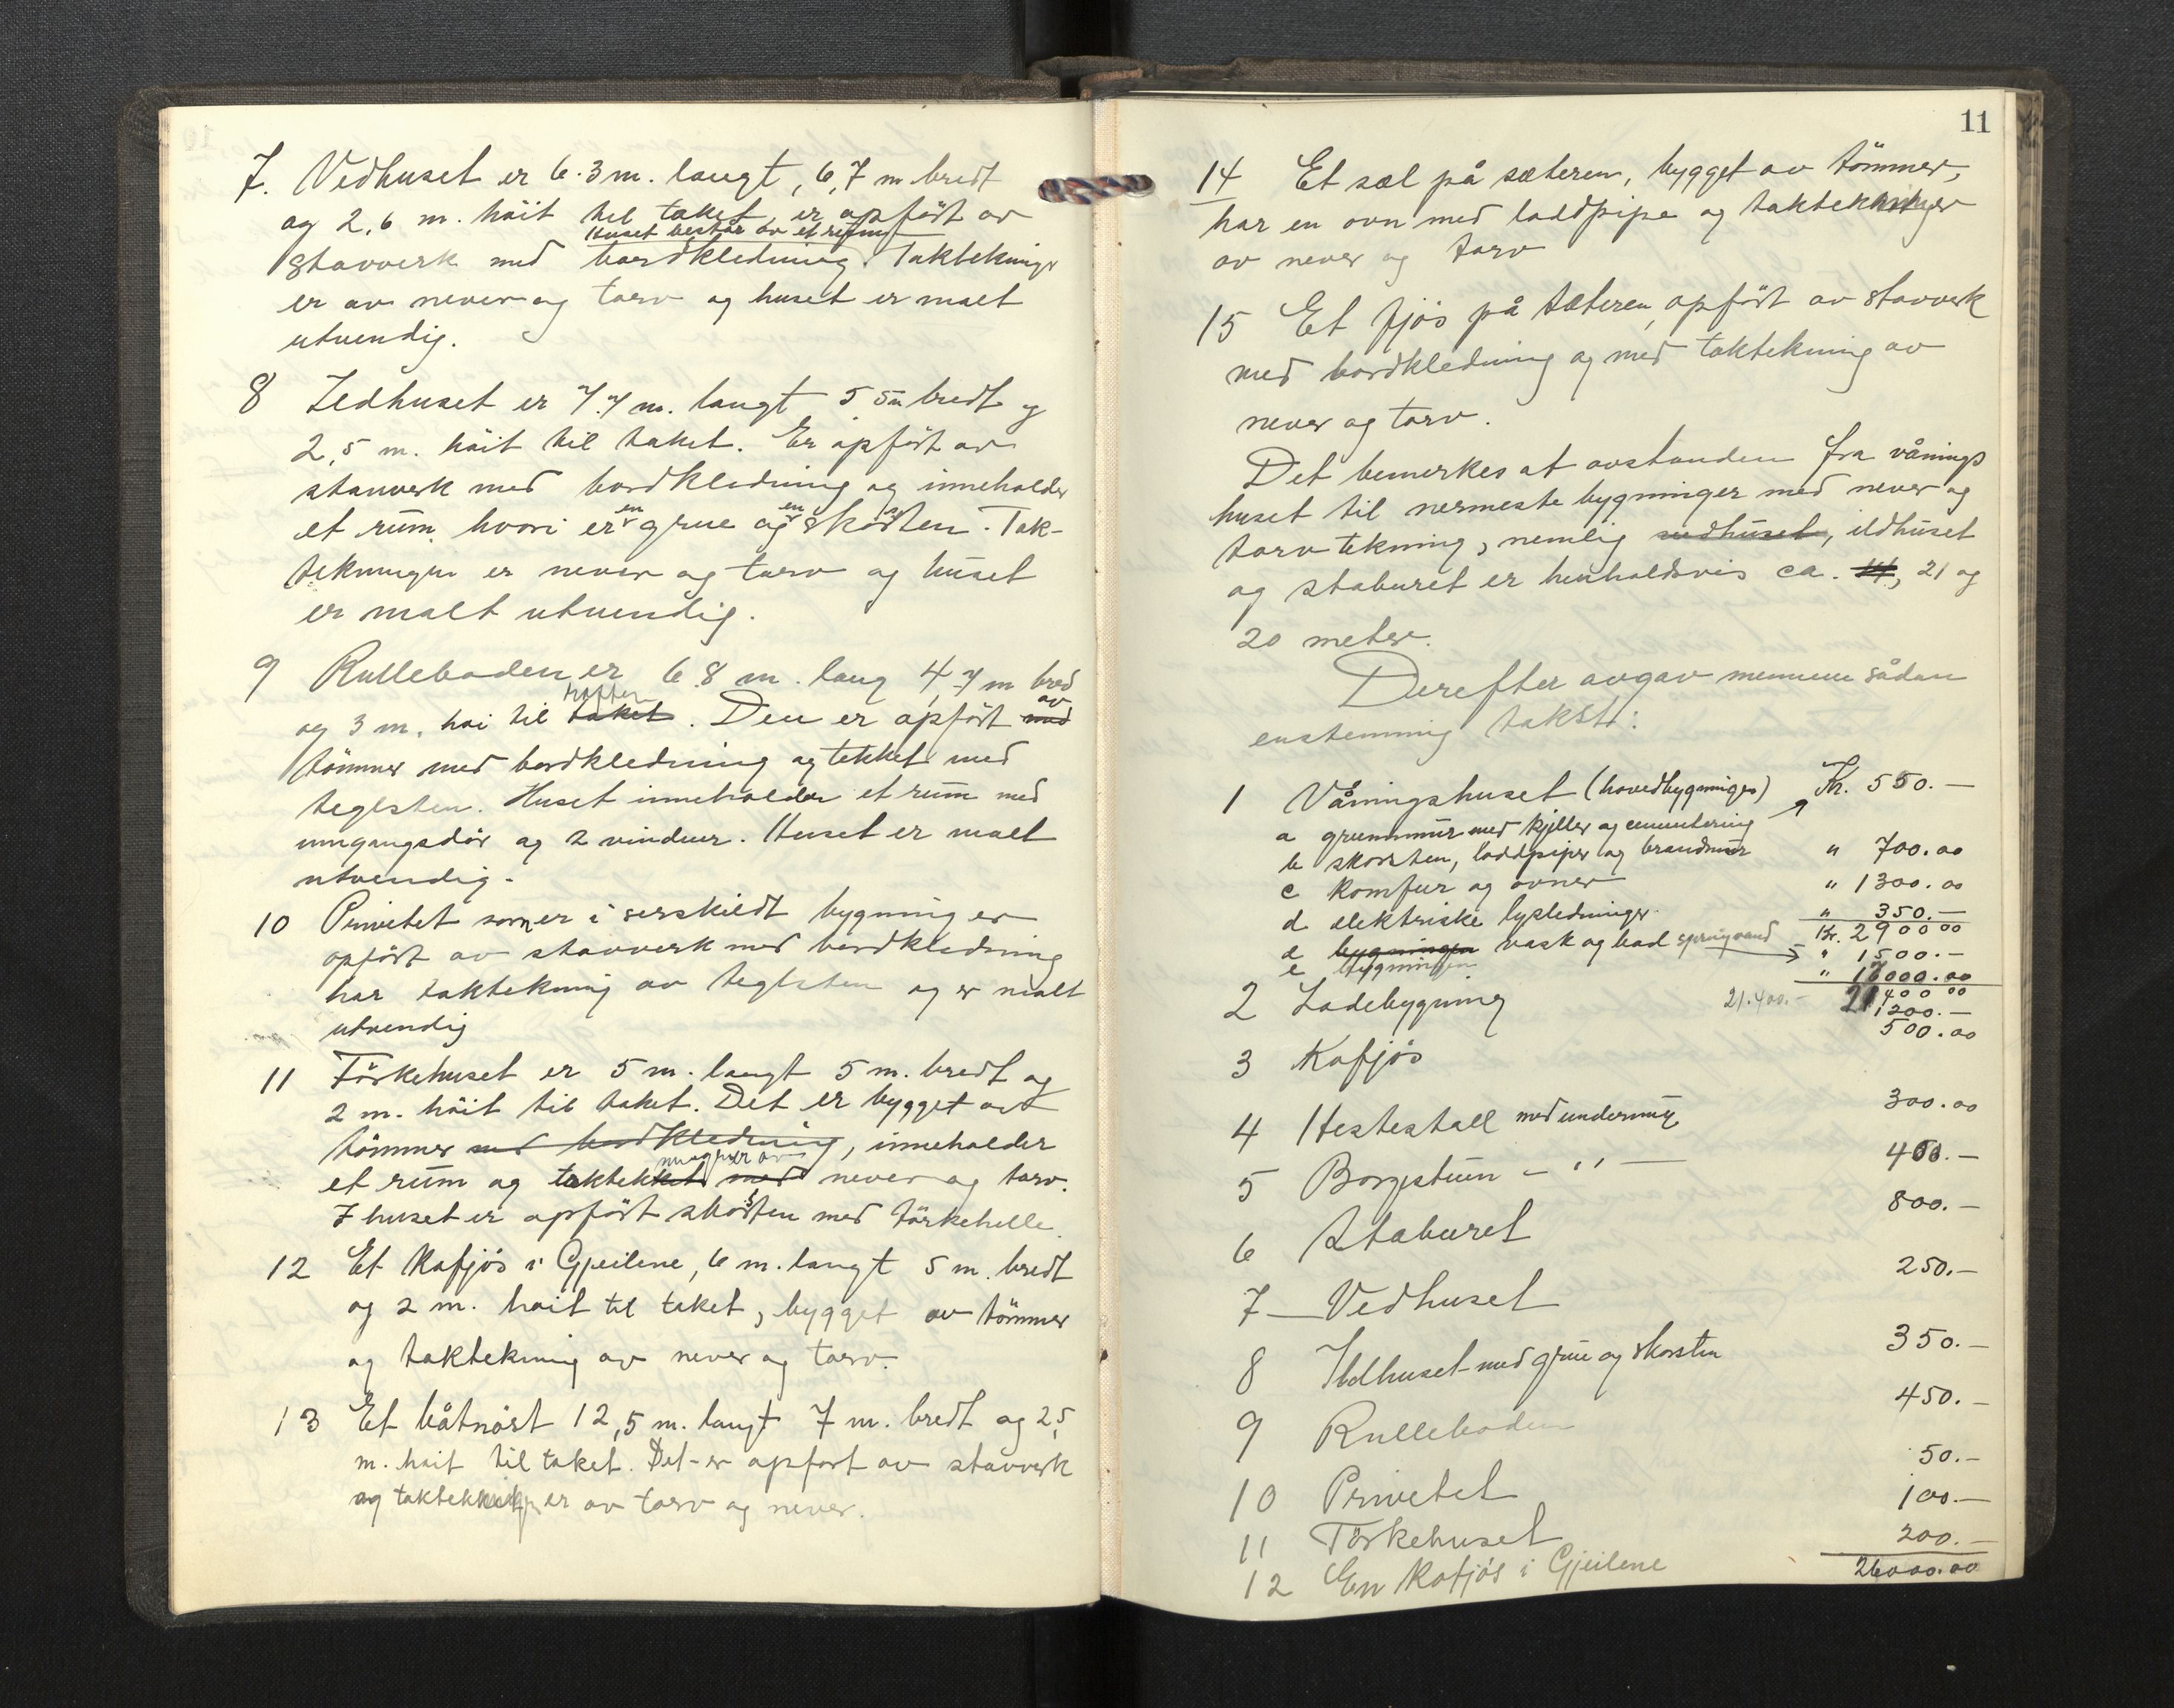 7. Vedhuset er 6.3 m. langt, 6,7 m bredt
og 2,6 m. höit til taket, er opfört av
Huset består av et rum
stavverk med bordkledning. Taktekninger
er av never og torv og huset er malt
utvendig.
8 Ildhuset er 7.7 m. langt 5 5m bredt og
2,5 m. höit til taket. Er opfört av
stavverk med bordkledning og inneholder
et rum hvori er en grue og en skorsten. Tak-
tekningen er never og torv og huset
er malt utvendig.
9 Rulleboden er 6.8 m. lang 4,7 m bred
og 3 m. höi til taket röften. Den er opfört med av
tömmer med bordkledning og tekket med
teglsten. Huset inneholder et rum med
inngangsdör og 2 vinduer. Huset er malt
utvendig.
10 Privetet som er i serskildt bygning er
opfört av stavverk med bordkledning
har taktekning av teglsten og er malt
utvendig
11 Törkehuset er 5 m. langt 5 m. bredt og
2 m. höit til taket. Det er bygget av
tömmer med bordkledning, inneholder
et rum og taktekket med never og torv.
I huset er opfört skorsten med törkehelle.
12 Et kafjös i Gjeilene, 6 m. langt 5 m. bredt
og 2 m. höit til taket, bygget av tömmer
og taktekning av never og torv.
13 Et båtnöst 12,5 m. langt 7 m. bredt og 2,5
m. höit til taket. Det er opfört av stavverk
og er av torv og never.
11
14 Et sæl på sæteren, bygget av tömmer,
har en ovn med laddpipe og taktekninger
av never og torv
15 Et fjös på sæteren, opfört av stavverk
med bordkledning og med taktekning av
never og torv.
Det bemerkes at avstanden fra vånings
huset til nermeste bygninger med never og
torv tekning, nemlig vedhuset, ildhuset
og staburet er henholdsvis ca. 14, 21 og
20 meter.
Derefter avgav mennene sådan
enstemmig takst:
1 Våningshuset (hovedbygningen) Kr. 550.—
a grunnmur med kjeller og cementering
b skorsten, laddpiper og brandmur " 700.00
c komfur og ovner " 1300.00
d elektriske lysledninger " 350.—
Kr. 2900 00
d bygningen vask og bad springvand " 1500.—
e Bygningen " 17000.00
2 Ladebygning 21.400.— 21400 00
1200.—
500.00
3 Kafjös
300.00
4 Hestestall med undermur
400.—
5 Borgestuen — " —
800.—
6 Staburet
250.—
7 — Vedhuset
350.—
8 Ildhuset med grue og skorsten
450.—
9 Rulleboden
50.—
10 Privetet
100.—
11 Törkehuset
200.—
12 En kafjös i Gjeilene
26000.00